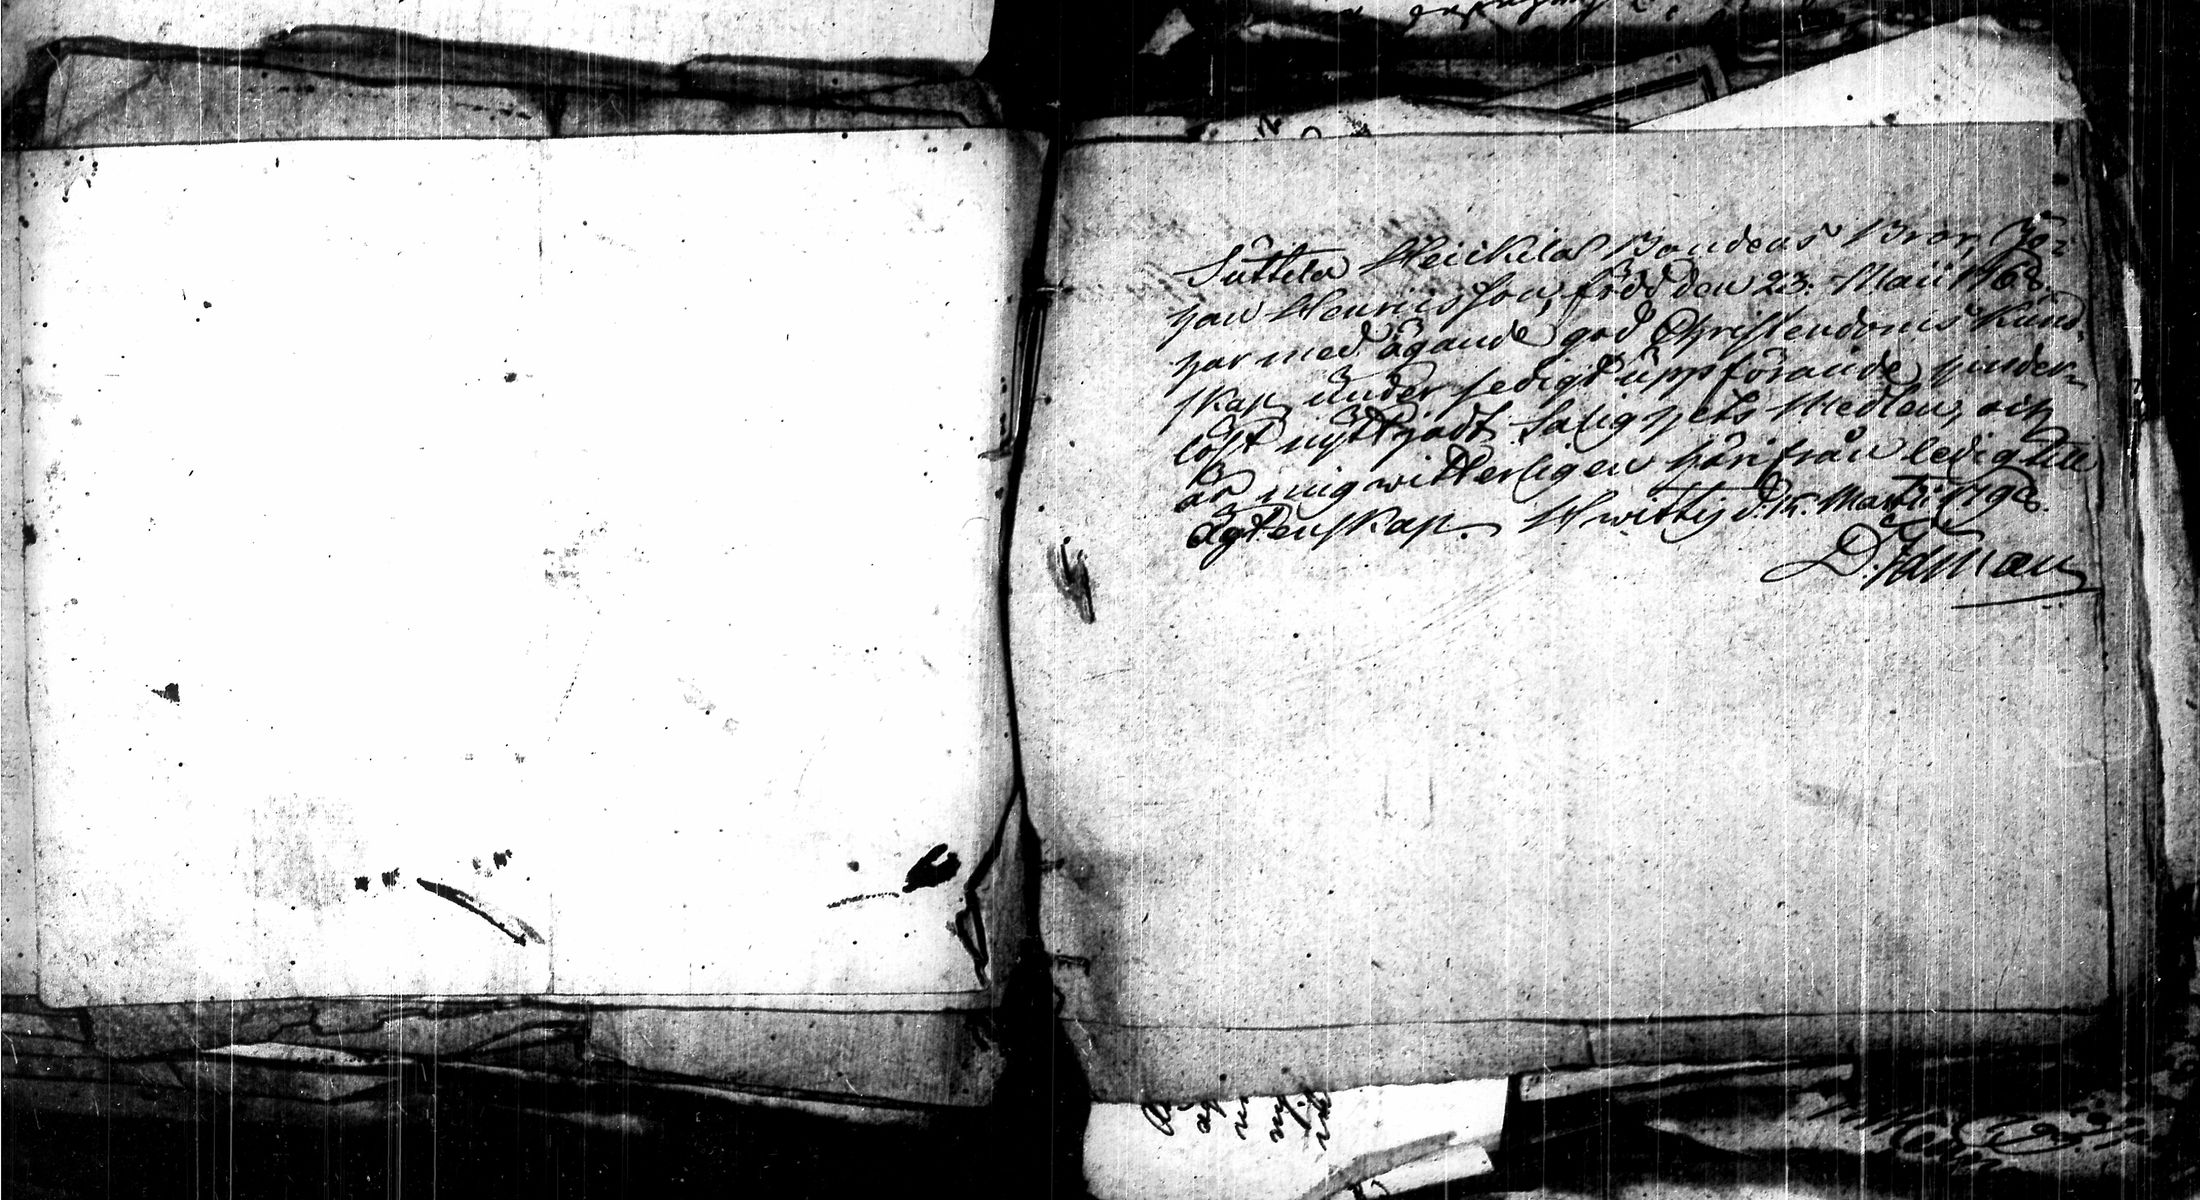 Suttila Heickilä Bondens Bror, Jo-
han Henricsson, född den 23. Maii 1768.
har med ägande god Christendoms kund-
skap, under sedigt uppförande, hinder-
löst nyttjadt Salighets Medlen, och
är mig witterligen härifrån ledig till
Ägtenskap. Hwittis d. 15. Martii 1798.
D. Idman